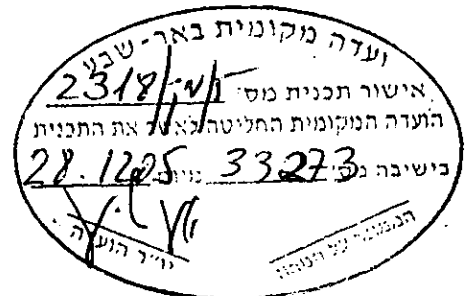 ועדה מקומית באר-שבע
אישור תכנית מס' 2318/
הועדה המקומית החליטה לאשר את התכנית
בישיבה מס' 33273 מיום 28.12.05
יו"ר הועדה
הממונה על המחוז